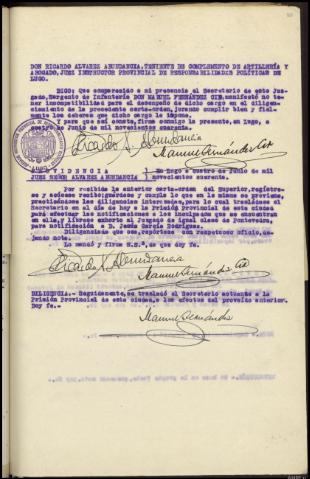 DON RICARDO ALVAREZ ABUNDANCIA, TENIENTE DE COMPLEMENTO DE ARTILLERÍA Y
ABOGADO, JUEZ INSTRUCTOR PROVINCIAL DE RESPONSABILIDADES POLITICAS DE
LUGO.
DIGO: Que comparecido a mi presencia el Secretario de este Juz-
gado, Sargento de Infantería DON MANUEL FERNÁNDEZ CID, manifestó no te-
ner incompatibilidad para el desempeño de dicho cargo en el diligen-
ciamiento de la precedente carta-orden, jurando cumplir bien y fiel-
mente los deberes que dicho cargo le impone.
Y para que así conste, firma conmigo la presente, en Lugo, a
cuatro de Junio de mil novecientos cuarenta.
Ricardo A. Abundancia
Manuel Fernández Cid
PROVIDENCIA ) En Lugo a cuatro de Junio de mil
JUEZ SEÑOR ALVAREZ ABUNDANCIA ) novecientos cuarenta.
Por recibida la anterior carta-orden del Superior, regístre-
se y acúsese recibo; guárdese y cumpla lo que en la misma se previene
practicándose las diligencias interesadas, para lo cual trasládese el
Secretario en el día de hoy a la Prisión Provincial de esta ciudad,
para efectuar las notificaciones a los inculpados que se encuentran
en ella, y líbrese exhorto al Juzgado de igual clase de Pontevedra,
para notificación a D. Jesús García Rodríguez.
Diligenciado que sea, repórtese con respetuoso oficio, de-
jando nota.
Lo mandó y firma S.Sª, de que doy fe.
Ricardo A. Abundancia
Manuel Fernández Cid
DILIGENCIA.- Seguidamente, se trasladó el Secretario actuante a la
Prisión Provincial de esta ciudad, a los efectos del proveído anterior.
Doy fe.-
Manuel Fernández